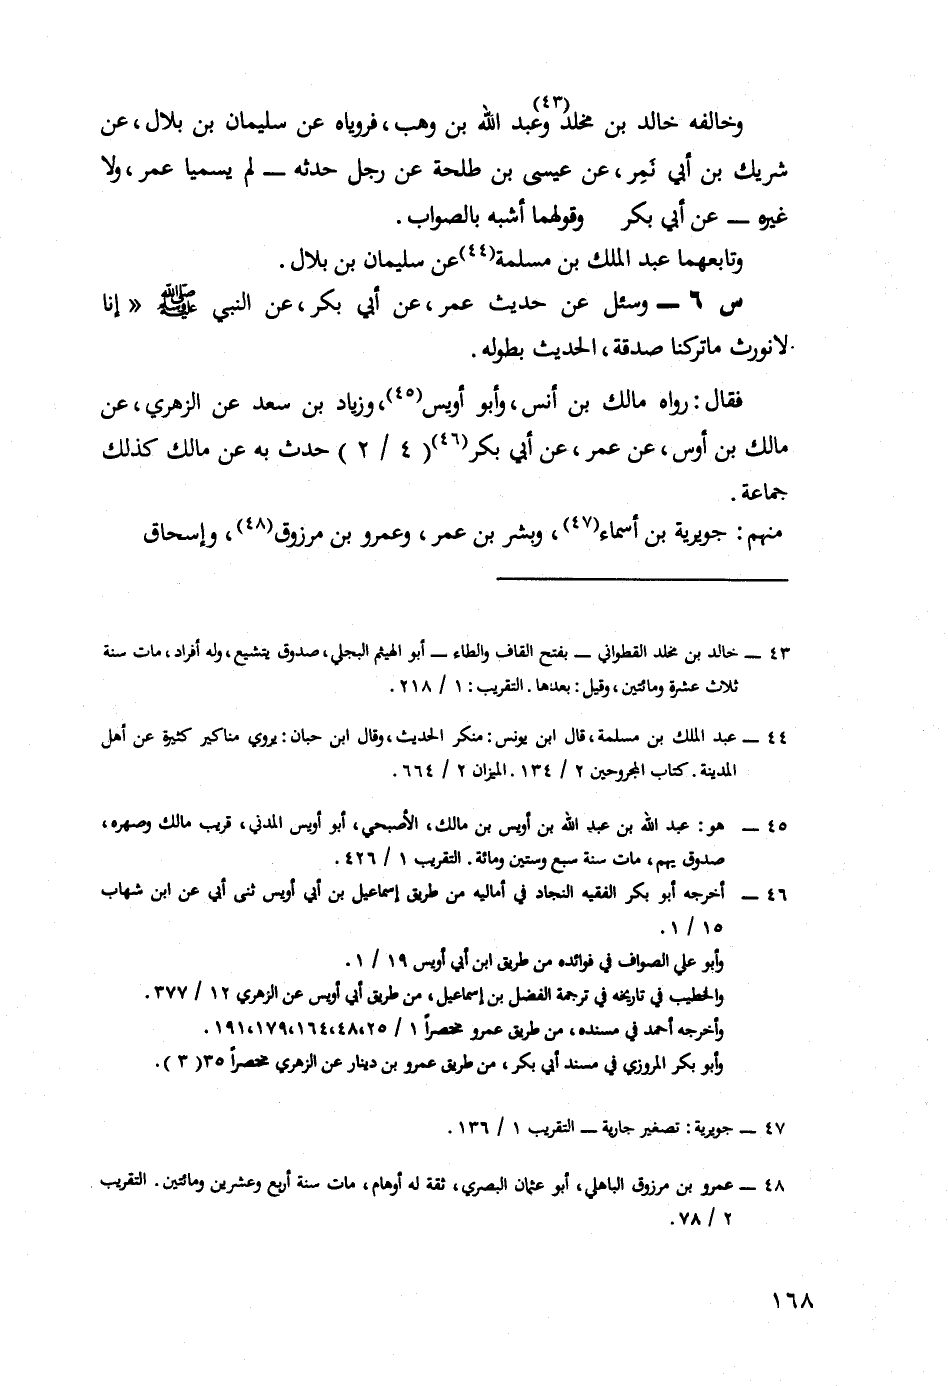 وخالفه خالد بن مخلد(٤٣) وعبد الله بن وهب، فروياه عن سليمان بن بلال، عن
شريك بن أبي نَمِر، عن عيسى بن طلحة عن رجل حدثه ــ لم يسميا عمر، ولا
غيره ــ عن أبي بكر وقولهما أشبه بالصواب.
وتابعهما عبد الملك بن مسلمة(٤٤) عن سليمان بن بلال.
س ٦ ــ وسئل عن حديث عمر، عن أبي بكر، عن النبي ﷺ « إنا
لانورث ماتركنا صدقة، الحديث بطوله.
فقال: رواه مالك بن أنس، وأبو أويس(٤٥)، وزياد بن سعد عن الزهري، عن
مالك بن أوس، عن عمر، عن أبي بكر(٤٦) ( ٤ / ٢ ) حدث به عن مالك كذلك
جماعة.
منهم: جويرية بن أسماء(٤٧)، وبشر بن عمر، وعمرو بن مرزوق(٤٨)، وإسحاق
٤٣ ــ خالد بن مخلد القطواني ــ بفتح القاف والطاء ــ أبو الهيثم البجلي، صدوق يتشيع، وله أفراد، مات سنة
ثلاث عشرة ومائتين، وقيل: بعدها. التقريب: ١ / ٢١٨.
٤٤ ــ عبد الملك بن مسلمة، قال ابن يونس: منكر الحديث، وقال ابن حبان: يروي مناكير كثيرة عن أهل
المدينة. كتاب المجروحين ٢ / ١٣٤. الميزان ٢ / ٦٦٤.
٤٥ ــ هو: عبد الله بن عبد الله بن أويس بن مالك، الأصبحي، أبو أويس المدني، قريب مالك وصهره،
صدوق يهم، مات سنة سبع وستين ومائة. التقريب ١ / ٤٢٦.
٤٦ ــ أخرجه أبو بكر الفقيه النجاد في أماليه من طريق إسماعيل بن أبي أويس ثنى أبي عن ابن شهاب
١٥ / ١.
وأبو علي الصواف في فوائده من طريق ابن أبي أويس ١٩ / ١.
والخطيب في تاريخه في ترجمة الفضل بن إسماعيل، من طريق أبي أويس عن الزهري ١٢ / ٣٧٧.
وأخرجه أحمد في مسنده، من طريق عمرو مختصراً ١ / ٢٥،٤٨،١٦٤،١٧٩،١٩١.
وأبو بكر المروزي في مسند أبي بكر، من طريق عمرو بن دينار عن الزهري مختصراً ٣٥( ٣ ).
٤٧ ــ جويرية: تصغير جارية ــ التقريب ١ / ١٣٦.
٤٨ ــ عمرو بن مرزوق الباهلي، أبو عثمان البصري، ثقة له أوهام، مات سنة أربع وعشرين ومائتين. التقريب
٢ / ٧٨.
١٦٨